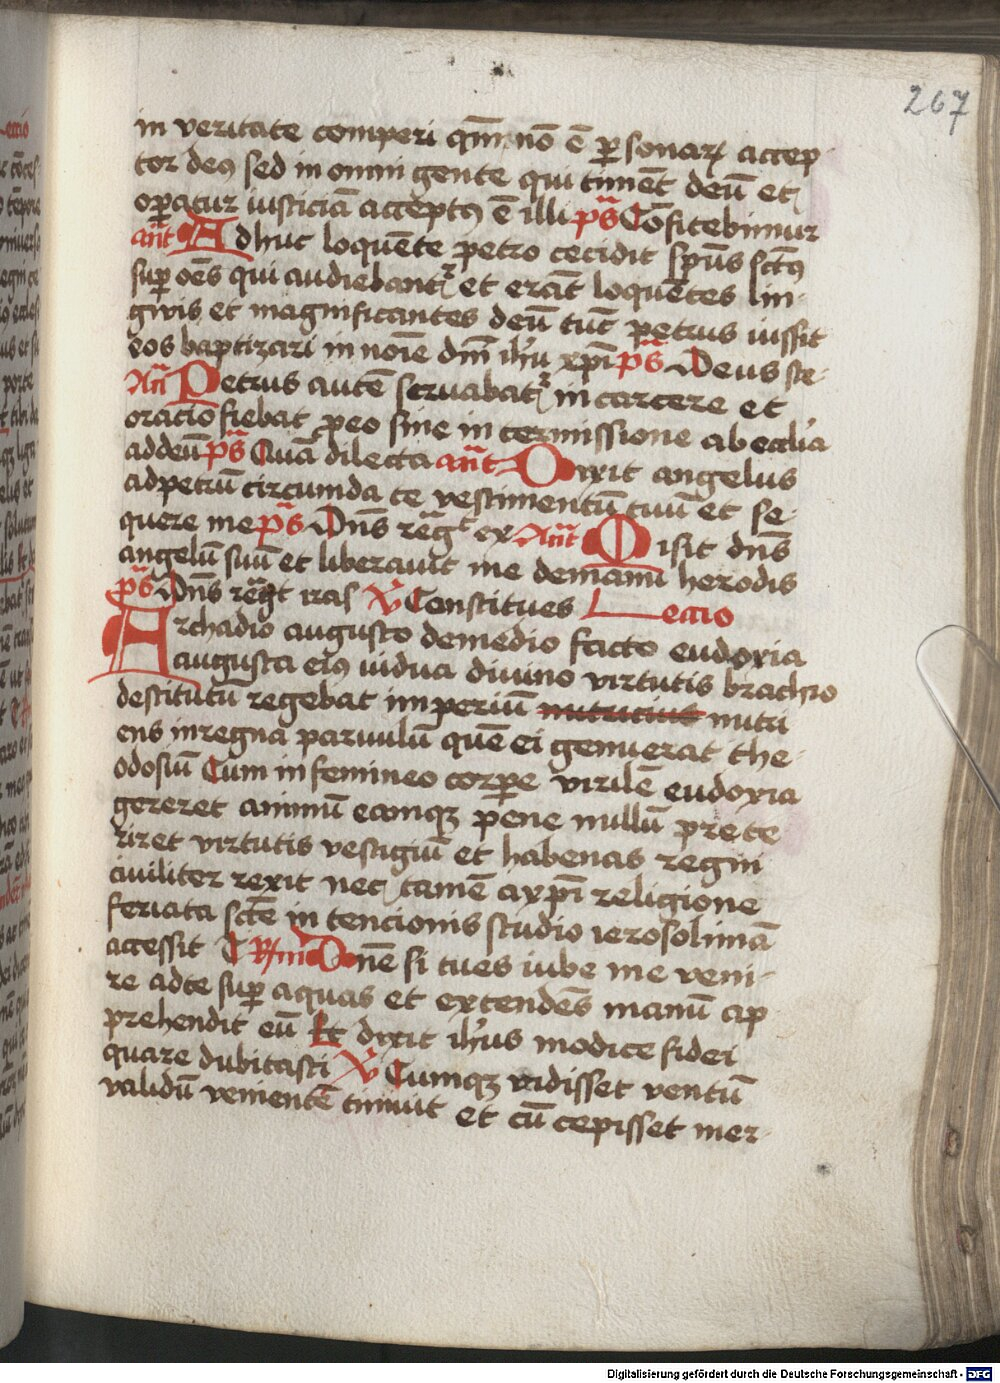 267
in veritate comperi qm̄ nō ē ꝑsonarꝝ accep-
tor deꝰ sed in omni gente qui timēt deū et
oꝑatur iusticiā acceptꝰ ē illi ps̄ Cōfitebimur
ant̄ Adhuc loquēte petro cecidit sp̄us sct̄us
suꝑ oēs qui audiebantr̄ et erāt loquētes lin-
gwis et magnificantes deū tūc petrus iussit
eos baptizari in noīe dn̄i ih̄u xp̄i ps̄ Deus ste-
An̄ Petrus autē seruabatr̄ in carcere et
oratio fiebat ꝓ eo sine intermissione ab ecclīa
ad deū ps̄ Quā dilecta ant̄ Dixit angelus
ad petrū circumda te vestimentū tuū et se-
quere me ps̄ Dn̄s rēgt ex Ant̄ Misit dn̄s
angelū suū et liberauit me de manu herodis
ps̄ Dn̄s rēgt iras V̄ Constitues Leccio
Archadio augusto de medio facto eudoxia
augusta eiꝰ vidua diuino virtutis brachio
destitutū regebat imperiū nutricius nutri
ens in regna paruulū quē ei genuerat the-
odosiū Cum in femineo corꝑe virilē eudoxia
gereret animū eamqꝫ pene nullū prete
riret virtutis vestigiū et habenas regni
ciuiliter rexit nec tamē a xp̄i religione
feriata sctē intencionis studio ierosolimā
accessit Rm̄ Dn̄e si tu es iube me veni-
re ad te suꝑ aquas et extendēs manū ap
prehendit eū Et dixit ih̄us modice fidei
quare dubitasti V̄ Cumqꝫ vidisset ventū
validū venientē timuit et cū cepisset mer-
Digitalisierung gefördert durch die Deutsche Forschungsgemeinschaft - DFG